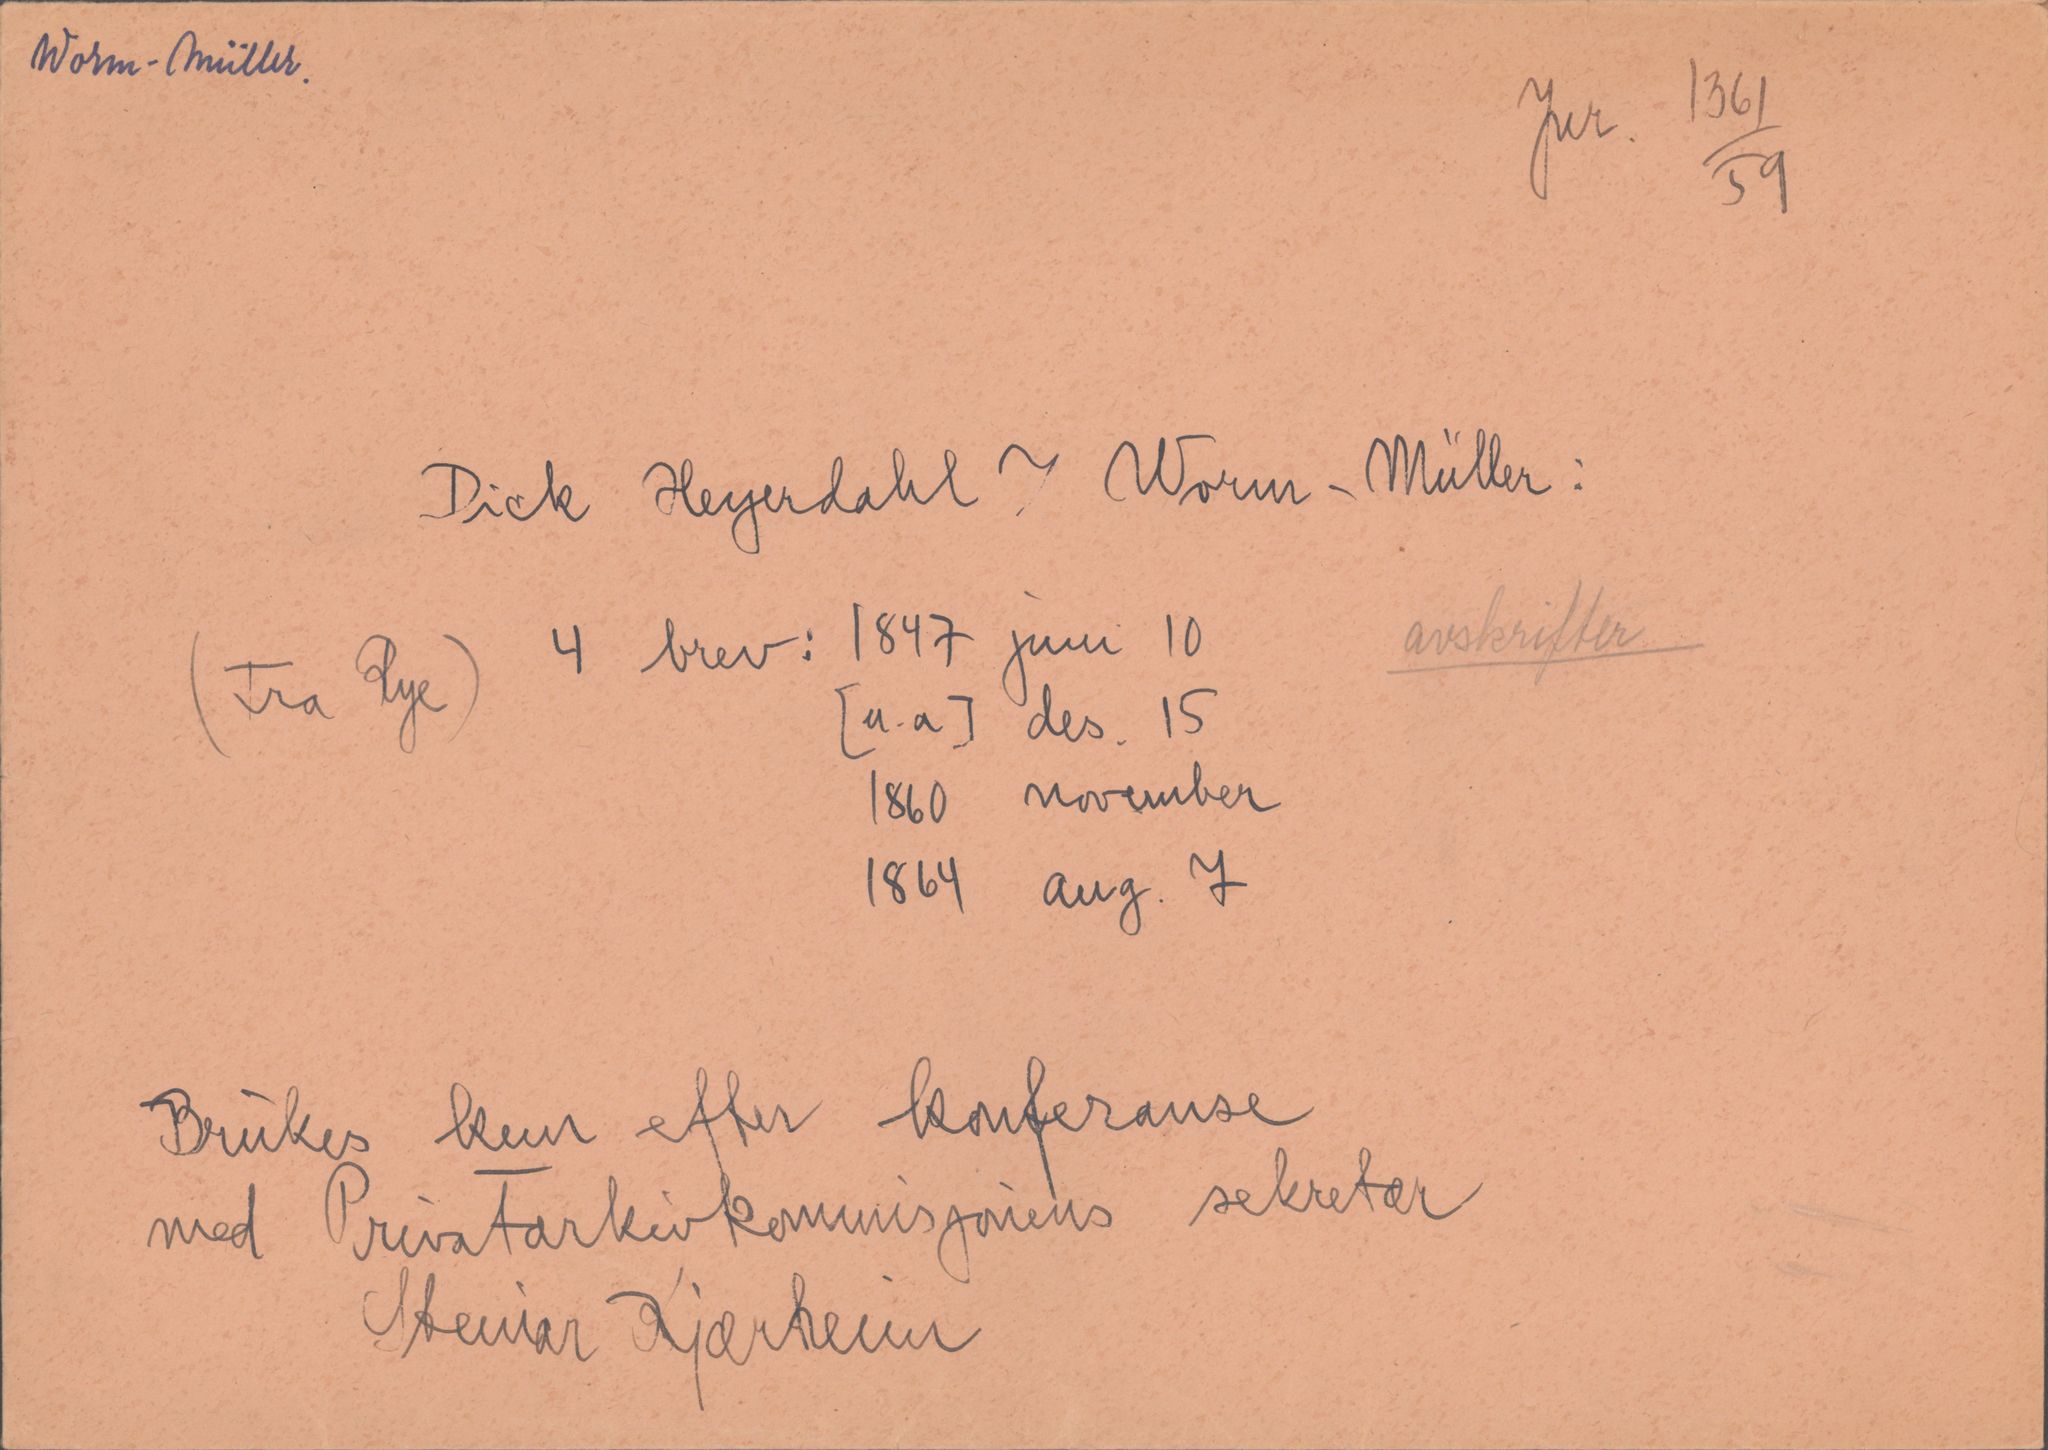 Worm-Müller.
Jnr. 1361/59
Dick Heyerdahl Worm-Müller:
(Fra Rye) 4 brev: 1847 juni 10 avskrifter
[u.a] des. 15
1860 november
1864 aug. 7
Brukes kun efter konferanse
med Privatarkivkommisjonens sekretær
Steinar Kjærheim